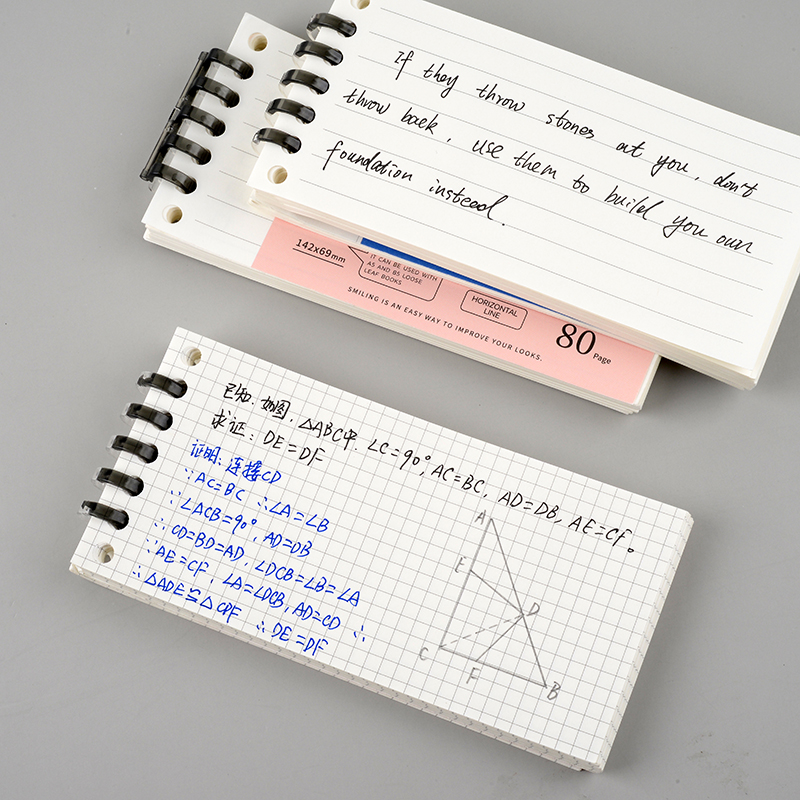 If they throw stones at you, don't
throw back, use them to build you own
foundation instead.
142x69mm
IT CAN BE USED WITH
A5 AND B5 LOOSE
LEAF BOOKS
HORIZONTAL
LINE
SMILING IS AN EASY WAY TO IMPROVE YOUR LOOKS.
80 Page
已知.如图.△ABC中.∠C=90°,AC=BC,AD=DB,AE=CF。
求证:DE=DF
证明:连接CD
∵AC=BC ∴∠A=∠B
∵∠ACB=90°,AD=DB
∴CD=BD=AD,∠DCB=∠B=∠A
∵AE=CF,∠A=∠DCB,AD=CD ∴
∴△ADE≌△CDF ∴DE=DF
A
E
D
C
F
B